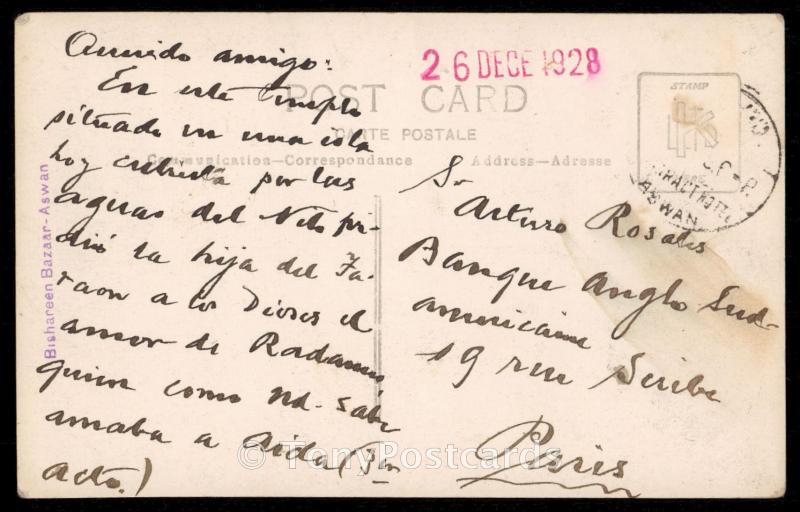 26 DECE 1928
POST CARD
CARTE POSTALE
Communication-Correspondance
Address-Adresse
STAMP
CATARACT HOTEL
ASWAN
Bishareen Bazaar-Aswan
Querido amigo:
En este templo
situado en una isla
hoy cubierta por las
aguas del Nilo pi-
dió la hija del Fa-
raon a los Dioses el
amor de Radames
quien como Ud. sabe
amaba a Aida (3er
acto.)
Sr
Arturo Rosales
Banque Anglo Sud-
americaine
19 rue Scribe
Paris
© TonyPostcards